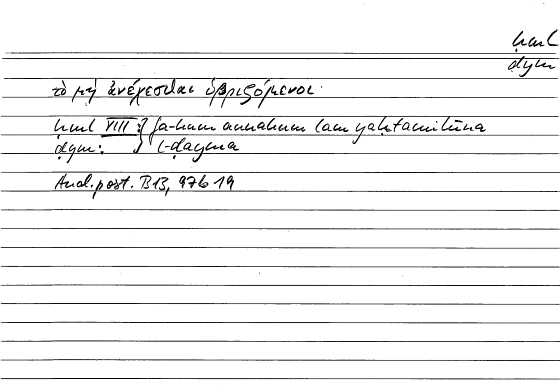 ḥml
ḍym
τὸ μὴ ἀνέχεσθαι ὑβριζόμενοι·
ḥml VIII: } fa-hum annahum lam yaḥtamilūna
ḍym: } l-ḍayma
Anal. post. B13, 97b 19